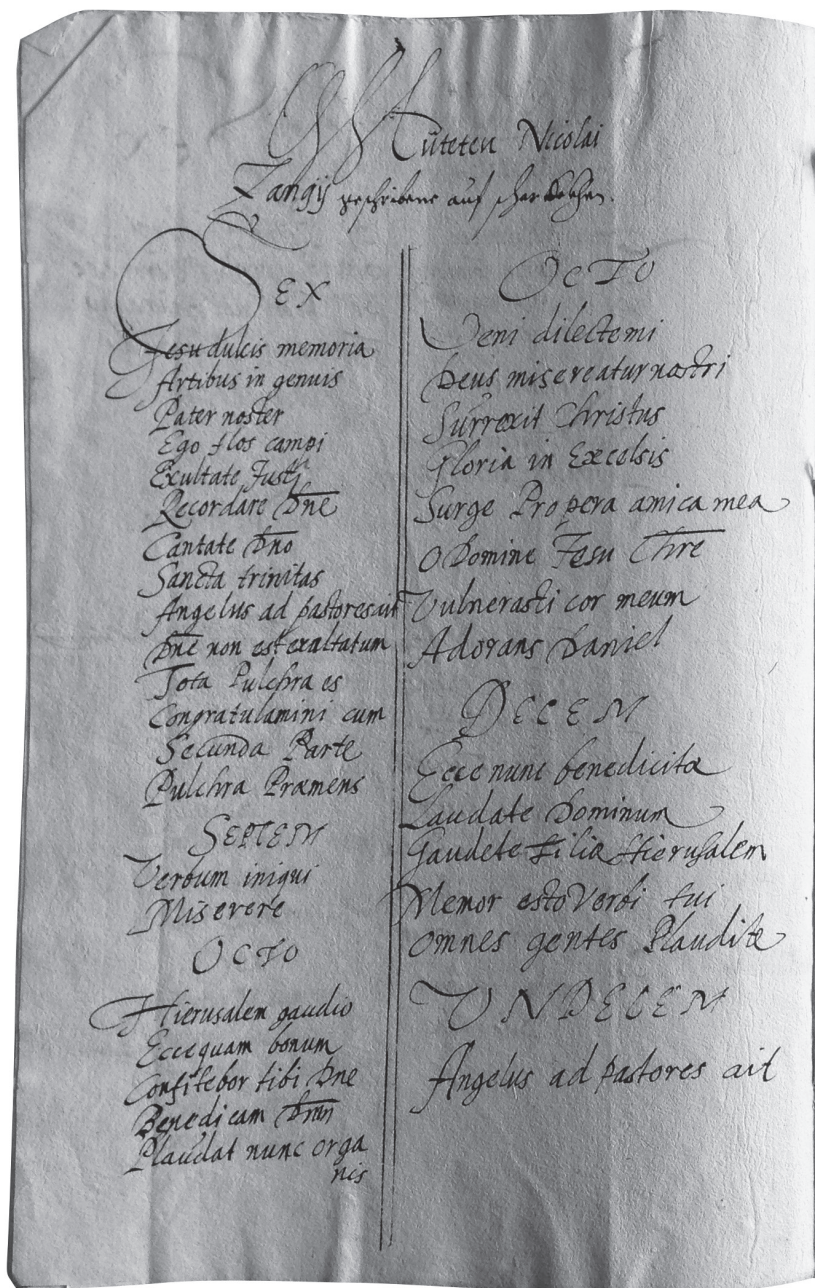 Muteten Nicolai
Zangij geschribene auf schar
SEX
Jesu dulcis memoria
Artibus in genuis
Pater noster
Ego flos campi
Exultate Justi
Recordare Dne
Cantate Dno
Sancta trinitas
Angelus ad pastores ait
Dne non est exaltatum
Tota Pulchra es
Congratulamini cum
Secunda Parte
Pulchra Præmens
SEPTEM
Verbum iniqui
Miserere
OCTO
Hierusalem gaudio
Ecce quam bonum
Confitebor tibi Dne
Benedicam Dnm
Plaudat nunc orga
nis
OCTO
Veni dilecte mi
Deus misereatur nostri
Surrexit Christus
Gloria in Excelsis
Surge Propera amica mea
O Domine Jesu Chre
Vulnerasti cor meum
Adorans Daniel
DECEM
Ecce nunc benedicite
Laudate Dominum
Gaudete filiæ Hierusalem
Memor esto Verbi tui
Omnes gentes Plaudite
VNDECEM
Angelus ad pastores ait